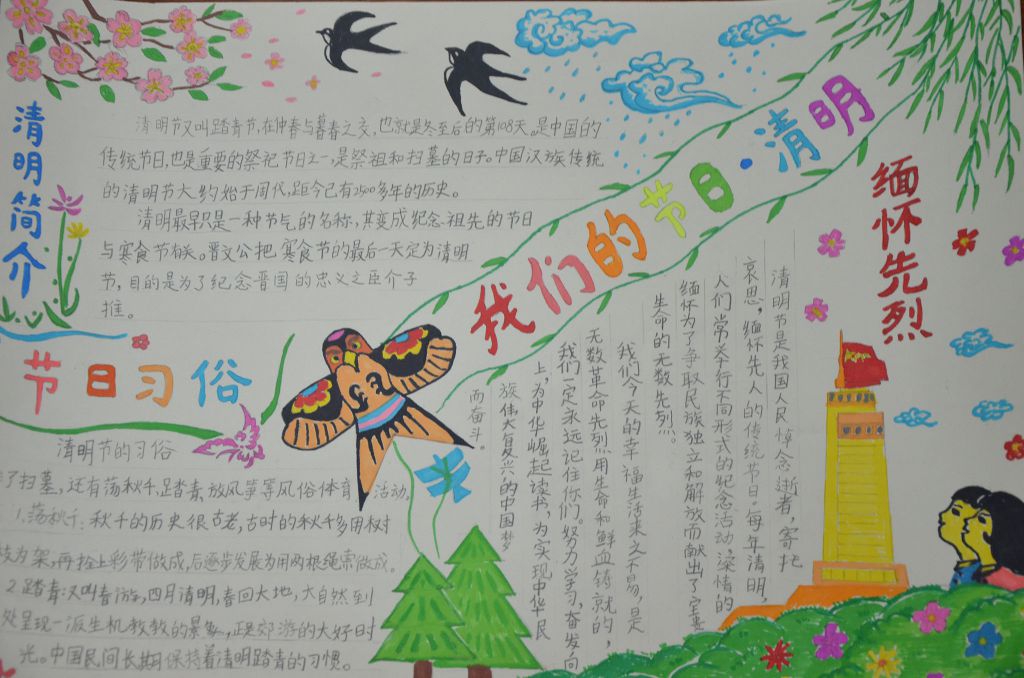 清明简介
清明节又叫踏青节，在仲春与暮春之交，也就是冬至后的第108天。是中国的
传统节日，也是重要的祭祀节日之一，是祭祖和扫墓的日子。中国汉族传统
的清明节大约始于周代，距今已有2500多年的历史。
清明最早只是一种节气的名称，其变成纪念祖先的节日
与寒食节有关。晋文公把寒食节的最后一天定为清明
节，目的是为了纪念晋国的忠义之臣介子
推。
我们的节日·清明
节日习俗
清明节的习俗
了扫墓，还有荡秋千、踏青、放风筝等风俗体育活动。
1.荡秋千：秋千的历史很古老，古时的秋千多用树
枝为架，再拴上彩带做成，后逐步发展为用两根绳索做成。
2.踏青：又叫春游，四月清明，春回大地，大自然到
处呈现一派生机勃勃的景象，正是郊游的大好时
光。中国民间长期保持着清明踏青的习惯。
缅怀先烈
清明节是我国人民悼念逝者，寄托
哀思，缅怀先人的传统节日。每年清明，
人们常举行不同形式的纪念活动，深情的
缅怀为了争取民族独立和解放而献出了宝贵
生命的无数先烈。
我们今天的幸福生活来之不易，是
无数革命先烈用生命和鲜血铸就的，
我们一定永远记住你们。努力学习，奋发向
上，为中华崛起读书，为实现中华民
族伟大复兴的中国梦
而奋斗。